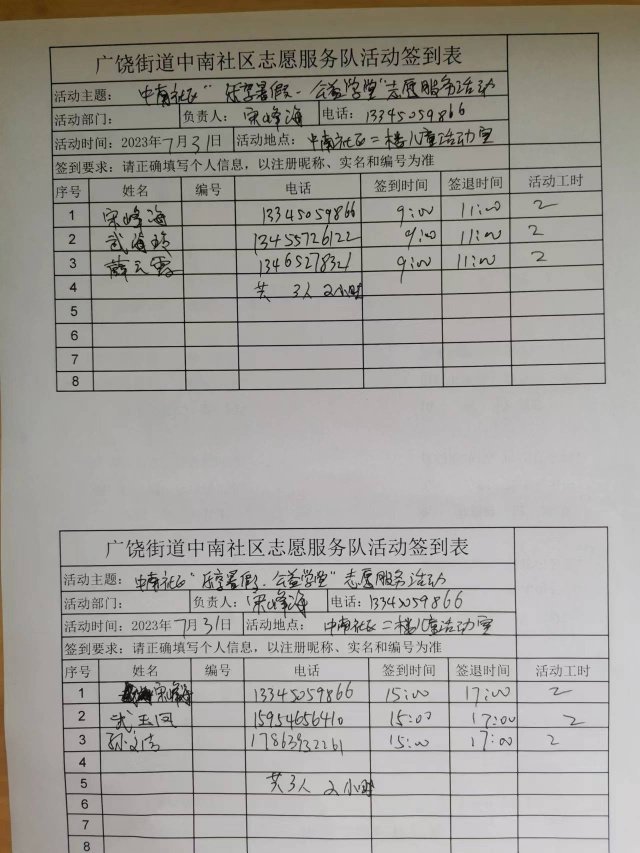 广饶街道中南社区志愿服务队活动签到表
活动主题： 中南社区“乐享暑假·公益学堂”志愿服务活动
活动部门： 负责人： 宋峰海 电话：13345059866
活动时间：2023年7月31日 活动地点： 中南社区二楼儿童活动室
签到要求：请正确填写个人信息，以注册昵称、实名和编号为准
序号 姓名 编号 电话 签到时间 签退时间 活动工时
1 宋峰海 13345059866 9:00 11:00 2
2 武海珍 13455726122 9:00 11:00 2
3 薛云霞 13465278321 9:00 11:00 2
4 共 3人 2小时
5
6
7
8
广饶街道中南社区志愿服务队活动签到表
活动主题： 中南社区“乐享暑假·公益学堂”志愿服务活动
活动部门： 负责人： 宋峰海 电话：13345059866
活动时间：2023年7月31日 活动地点： 中南社区二楼儿童活动室
签到要求：请正确填写个人信息，以注册昵称、实名和编号为准
序号 姓名 编号 电话 签到时间 签退时间 活动工时
1 宋峰海 13345059866 15:00 17:00 2
2 武玉凤 15954656410 15:00 17:00 2
3 孙文洁 17863932261 15:00 17:00 2
4
5 共3人 2小时
6
7
8